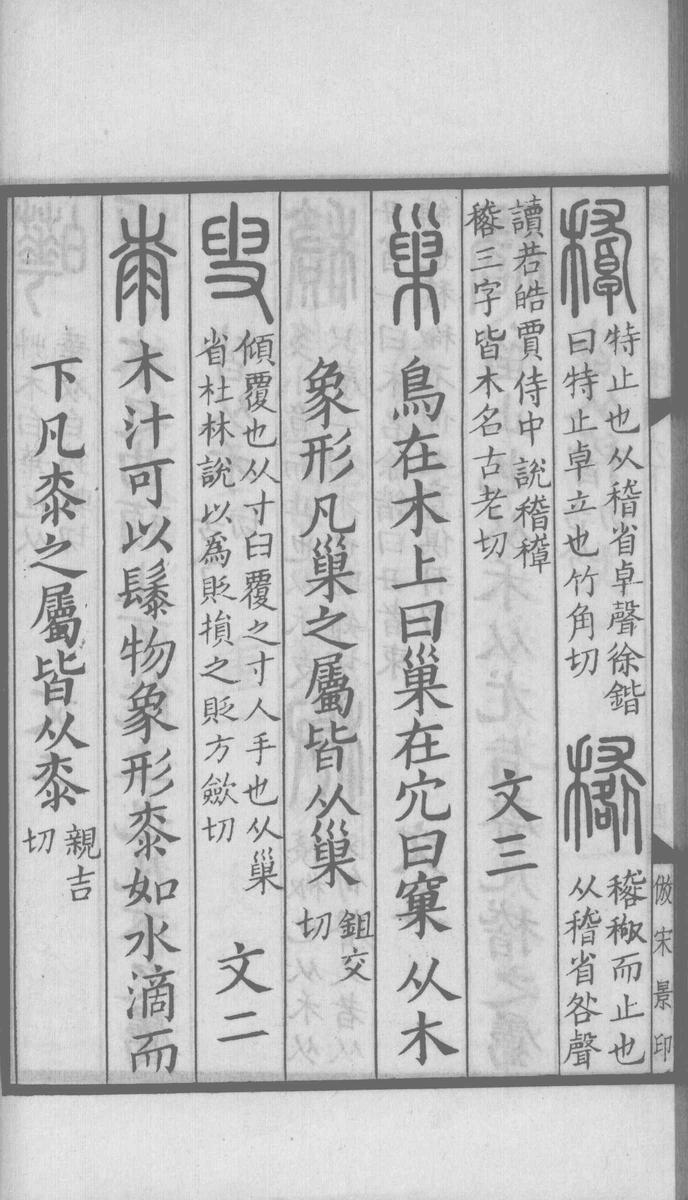 𥡴 特止也从稽省卓聲徐鍇
曰特止卓立也竹角切
𥢔 䅩而止也
从稽省咎聲
讀若皓賈侍中說稽𥡴
𥢔三字皆木名古老切
文三
巢 鳥在木上曰巢在穴曰窠从木
象形凡巢之屬皆从巢 鉏交
切
𠬛 傾覆也从寸臼覆之寸人手也从巢
省杜林說以爲貶損之貶方斂切
文二
桼 木汁可以䰍物象形桼如水滴而
下凡桼之屬皆从桼 親吉
切
倣宋景印